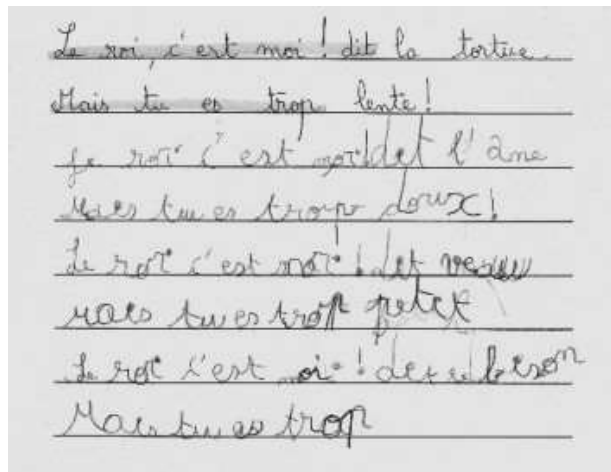 Le roi, c'est moi ! dit la tortue.
Mais tu es trop lente !
Le roi c'est moi ! dit l'âne
Mais tu es trop doux !
Le roi c'est moi ! dit
mais tu es trop petit
Le roi c'est moi ! dit bison
Mais tu es trop